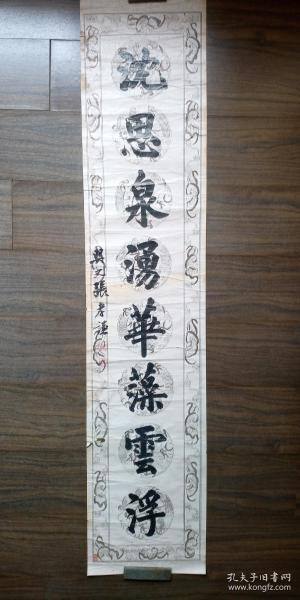 沈思泉湧華藻雲浮
張孝謙
孔夫子旧书网
www.kongfz.com